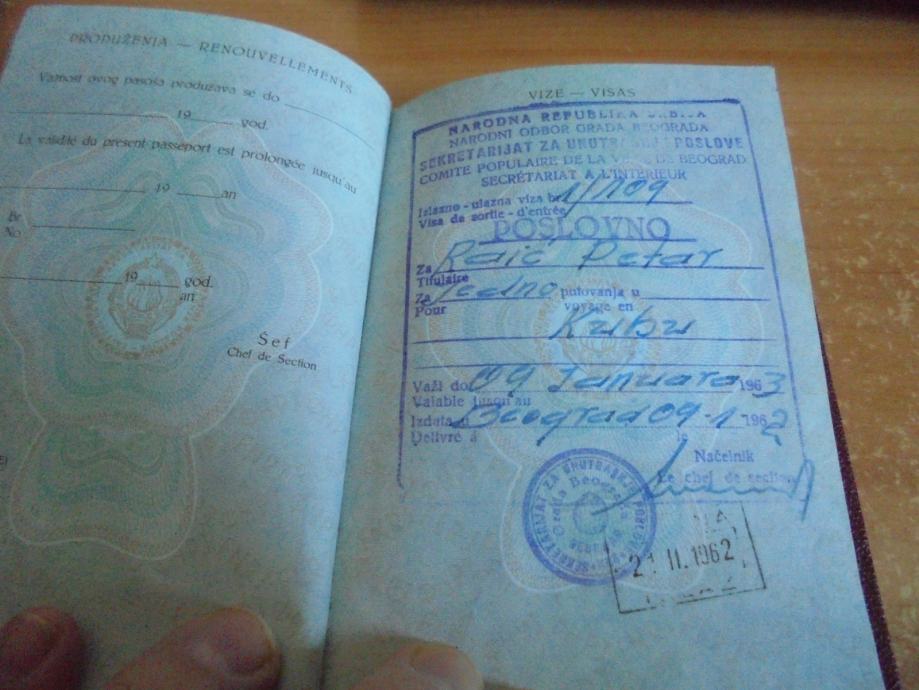 PRODUŽENJA — RENOUVELLEMENTS
Važnost ovog pasoša produžava se do
19 god.
La validité du present passeport est prolongée jusqu'au
19 an
Br
No
19 god.
an
Šef
Chef de Section
VIZE — VISAS
NARODNA REPUBLIKA SRBIJA
NARODNI ODBOR GRADA BEOGRADA
SEKRETARIJAT ZA UNUTRAŠNJE POSLOVE
COMITE POPULAIRE DE LA VILLE DE BEOGRAD
SECRÉTARIAT A L'INTERIEUR
Izlazno - ulazna viza br 1/109
Visa de sortie - d'entrée
POSLOVNO
Za Raić Petar
Titulaire
Za Jedno putovanja u
Pour voyage en
Kubu
Važi do 09 Januara 1963
Valable jusqu'au
Izdata u Beograd 09-1-1962
Delivré à le
Načelnik
Le chef de section
SEKRETARIJAT ZA UNUTRAŠNJE POSLOVE
Grada Beograda
II.1962